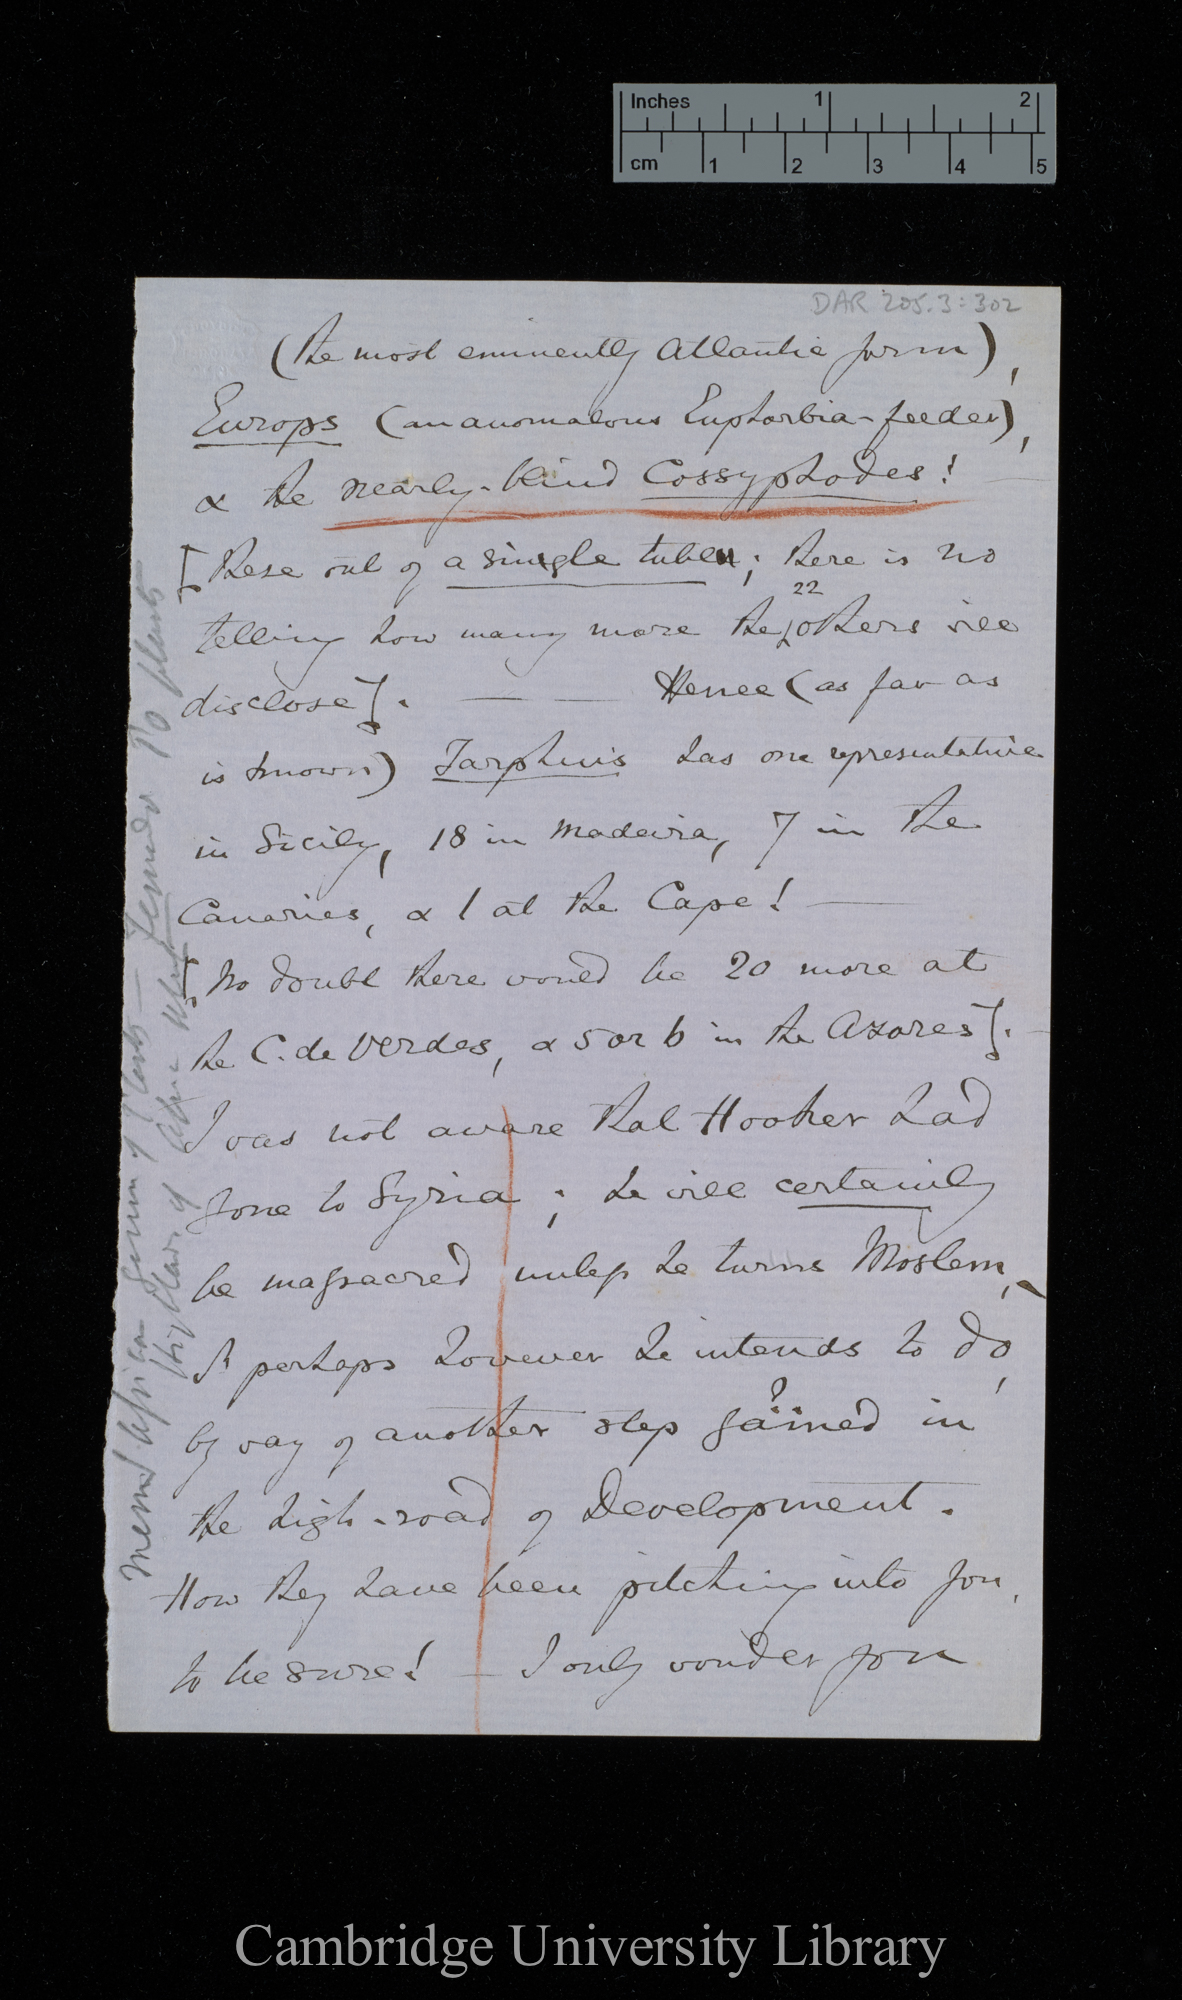 Inches 1 2
cm 1 2 3 4 5
DAR 205.3:302
(the most eminently Atlantic form),
Europs (an anomalous Euphorbia-feeder),
& the nearly-blind Cossyphodes!
[these out of a single tube; there is no
telling how many more the 22 others will
disclose]. — — Hence (as far as
is known) Tarphius has one representative
in Sicily, 18 in Madeira, 7 in the
Canaries, & 1 at the Cape! —
[No doubt there would be 20 more at
the C. de Verdes, & 5 or 6 in the Azores].
I was not aware that Hooker had
gone to Syria; he will certainly
be massacred unless he turns Moslem,
& perhaps however he intends to do,
by way of another step gained in
the high-road of Development.
How they have been pitching into you,
to be sure! — I only wonder you
African genera of plants —
to plants
Cambridge University Library